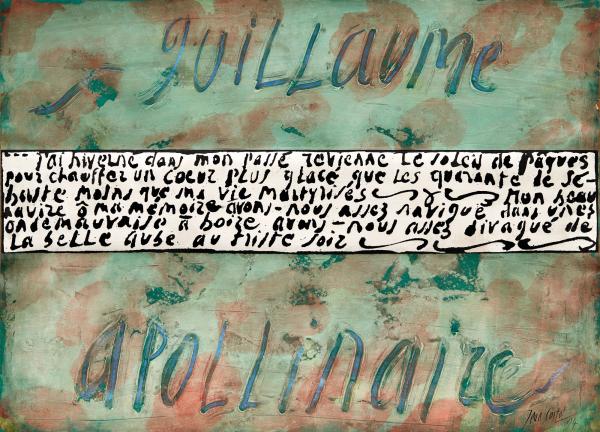 guillaume
... j'ai hiverné dans mon passé revienne le soleil de pâques
pour chauffer un coeur plus glacé que les quarante de sé-
baste moins que ma vie martyrisés Mon beau
navire ô ma mémoire avons-nous assez navigué dans une
onde mauvaise à boire avons-nous assez divagué de
la belle aube au triste soir
apollinaire